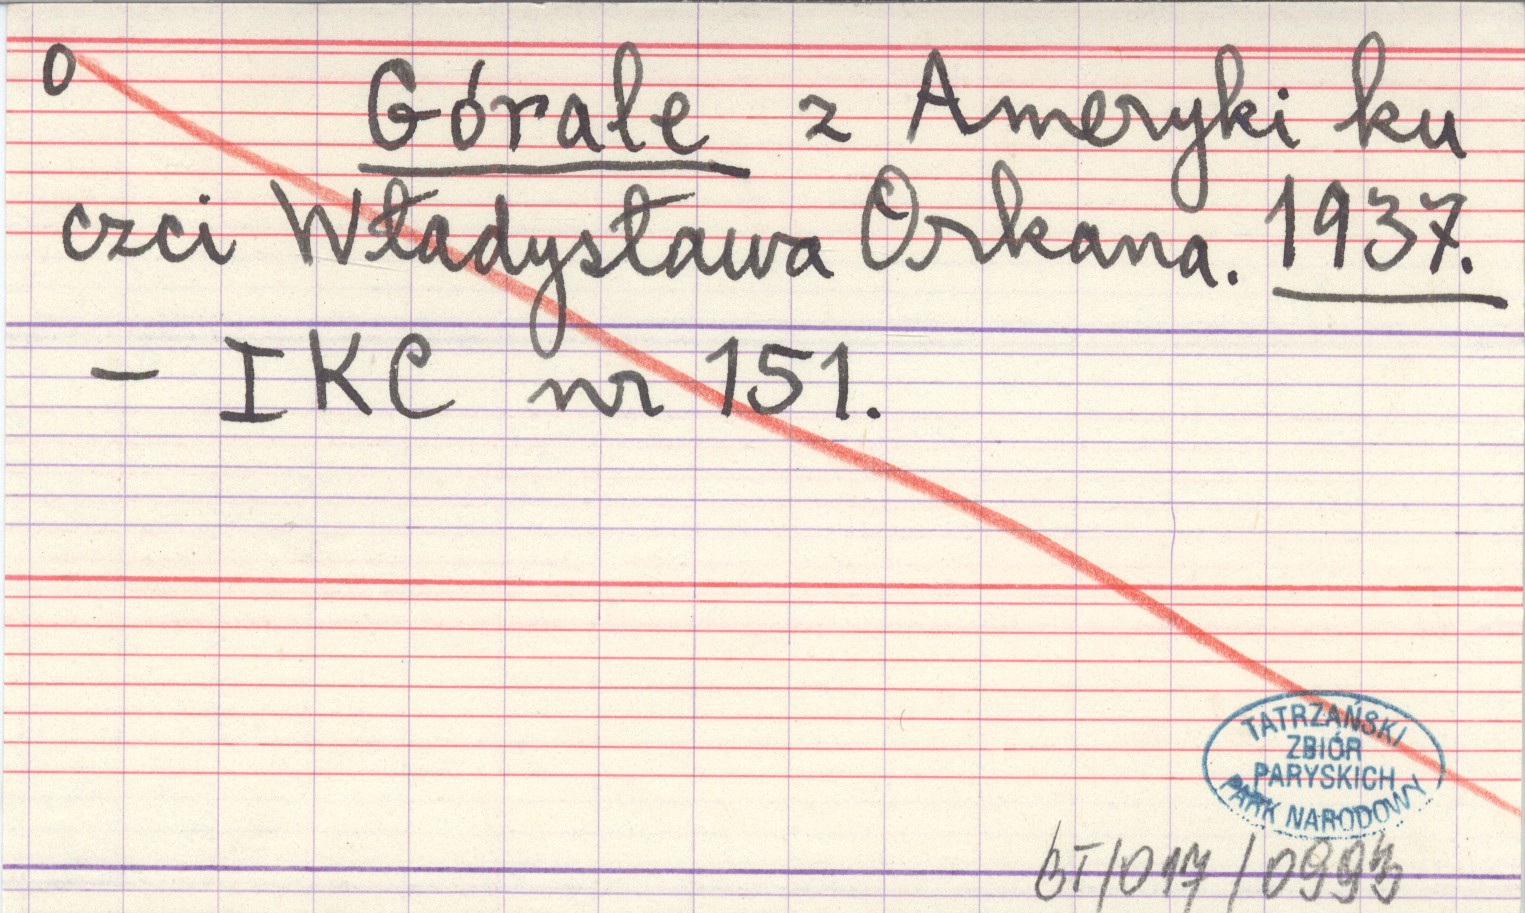 0 Górale z Ameryki ku
czci Władysława Orkana. 1937.
- IKC nr 151.
TATRZAŃSKI
ZBIÓR
PARYSKICH
PARK NARODOWY
BT/017/0993